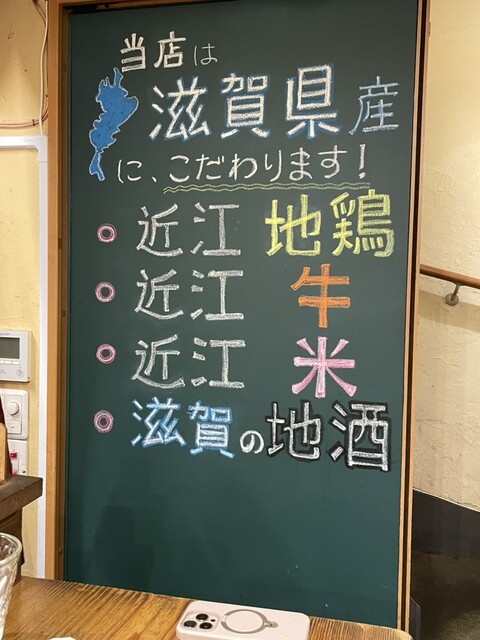 当店は
滋賀県産
に、こだわります!
近江 地鶏
近江 牛
近江 米
滋賀の地酒